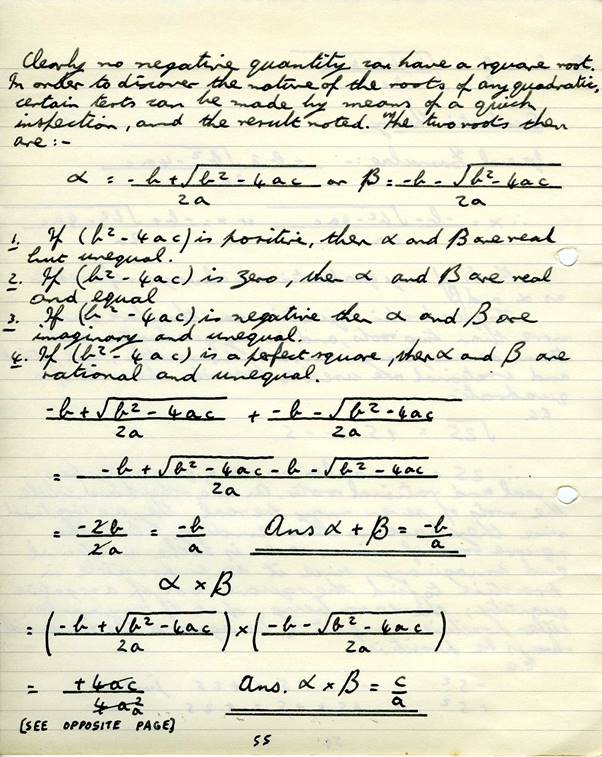 Clearly no negative quantity can have a square root.
In order to discover the nature of the roots of any quadratic,
certain tests can be made by means of a quick
inspection, and the result noted. The two roots then
are :-
α = -b + √b² - 4ac / 2a or β = -b - √b² - 4ac / 2a
1. If (b² - 4ac) is positive, then α and β are real
but unequal.
2. If (b² - 4ac) is zero, then α and β are real
and equal
3. If (b² - 4ac) is negative then α and β are
imaginary and unequal.
4. If (b² - 4ac) is a perfect square, then α and β are
rational and unequal.
-b + √b² - 4ac / 2a + -b - √b² - 4ac / 2a
= -b + √b² - 4ac - b - √b² - 4ac / 2a
= -2b / 2a = -b / a Ans α + β = -b / a
α × β
= (-b + √b² - 4ac / 2a) × (-b - √b² - 4ac / 2a)
= +4ac / 4a² a Ans. α × β = c / a
[SEE OPPOSITE PAGE]
55